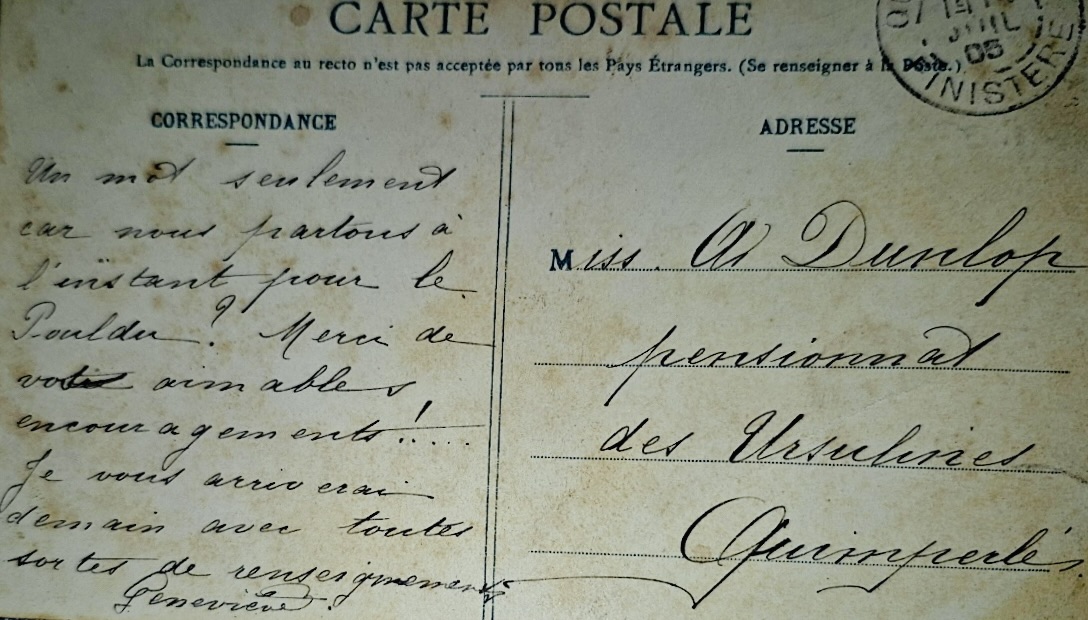 CARTE POSTALE
La Correspondance au recto n'est pas acceptée par tous les Pays Étrangers. (Se renseigner à la Poste.)
CORRESPONDANCE
Un mot seulement
car nous partons à
l'instant pour le
Pouldu ? Merci de
vos aimables
encouragements!.....
Je vous arriverai
demain avec toutes
sortes de renseignements
Geneviève.
ADRESSE
Miss. A Dunlop
pensionnat
des Ursulines
Quimperlé
05
FINISTERE